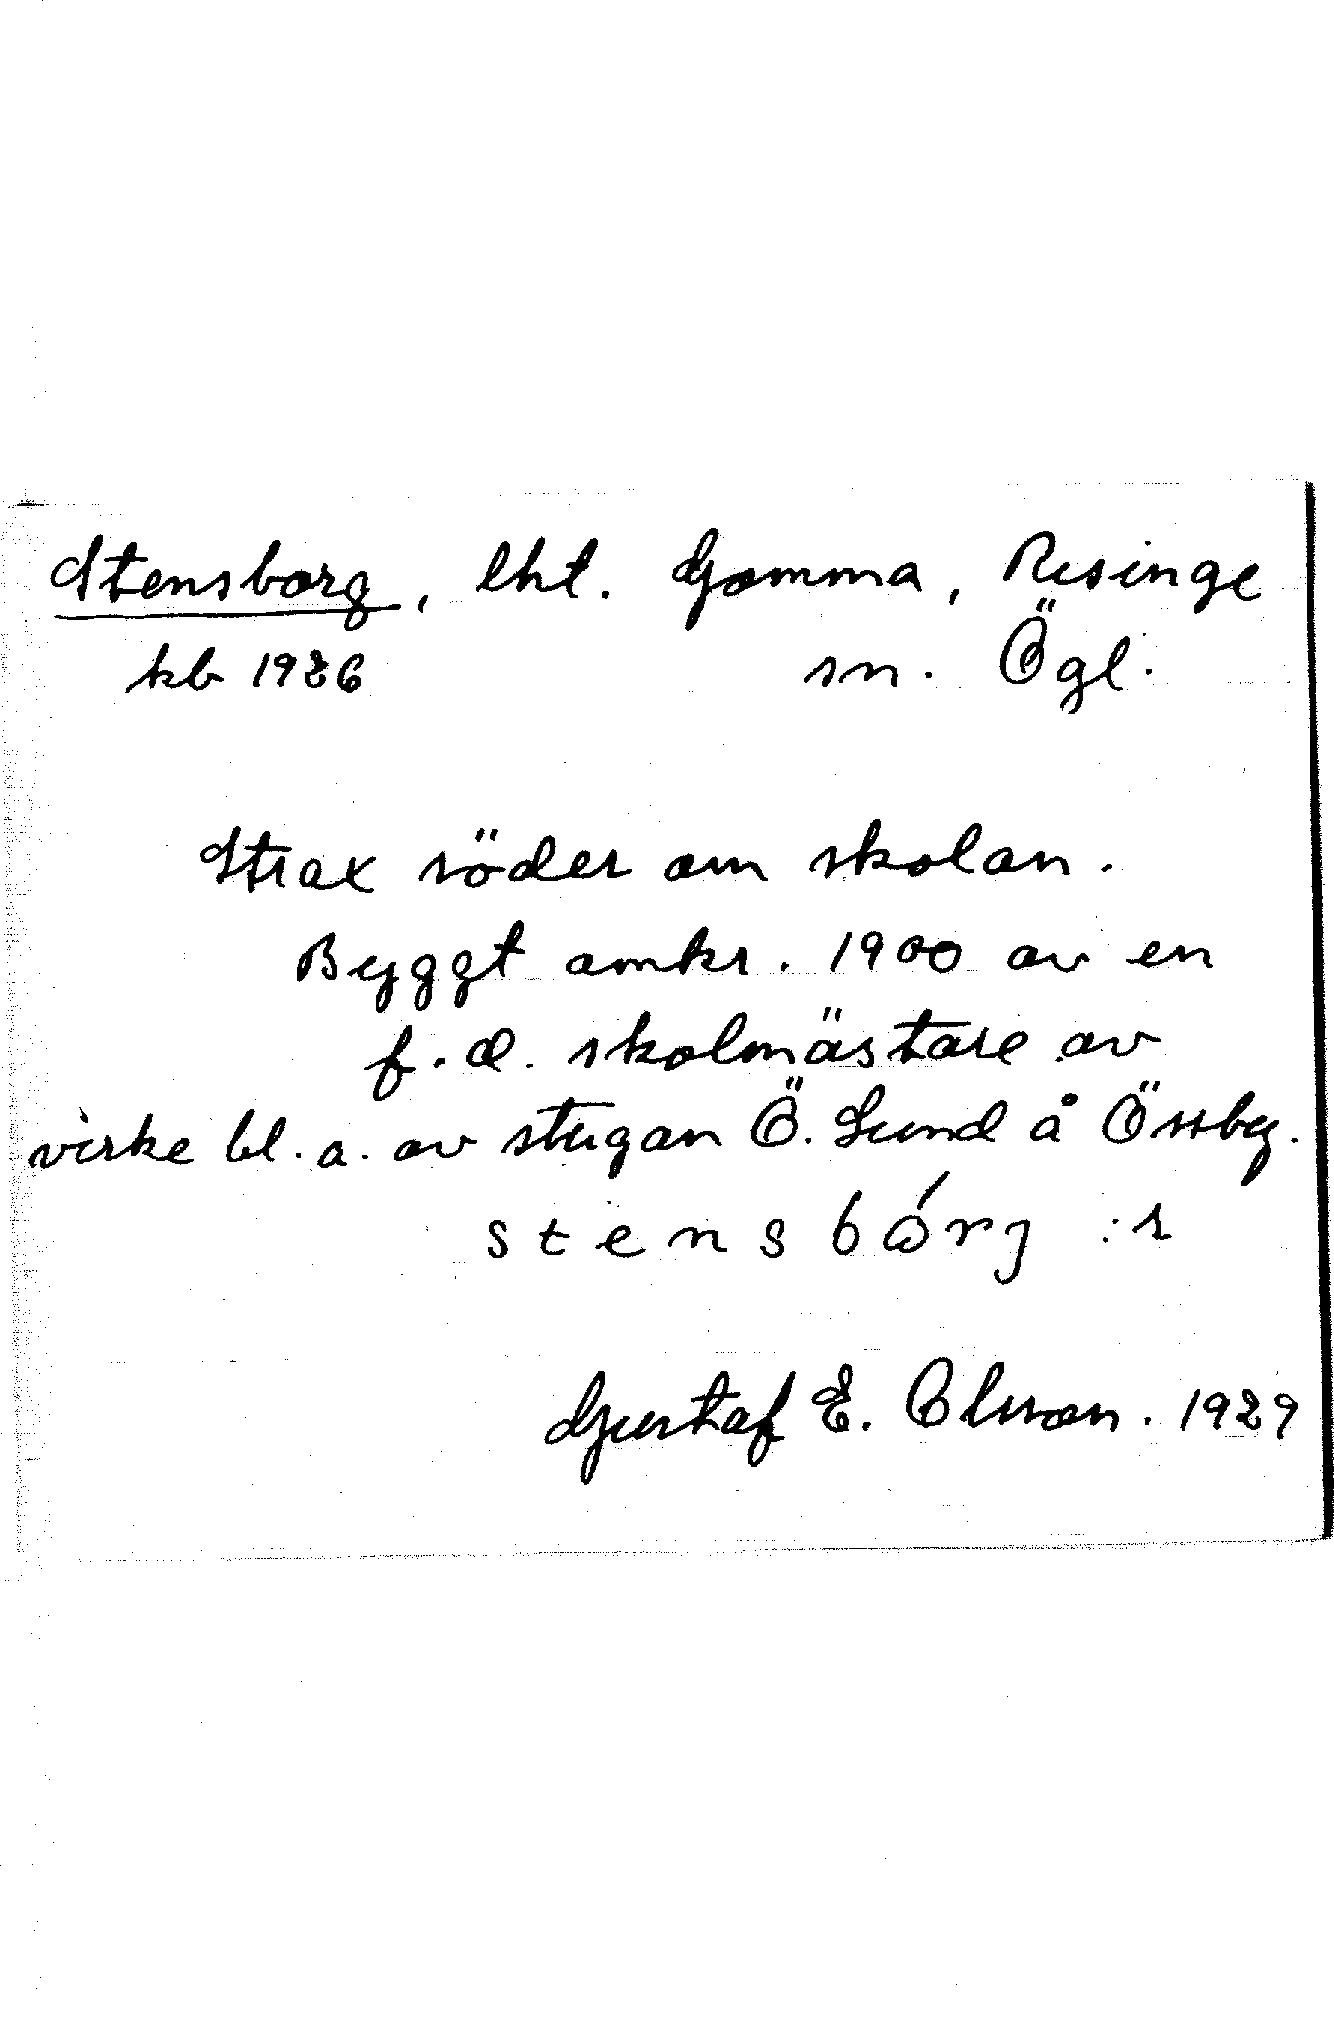 Stensborg, lht. Gomma, Risinge
kb 1926 sn. Ögl.
Strax söder om skolan.
Byggt omkr. 1900 av en
f.d. skolmästare av
virke bl.a. av stugan Ö. Lund å Össby.
stensbórj :s
Gustaf E. Olsson. 1929